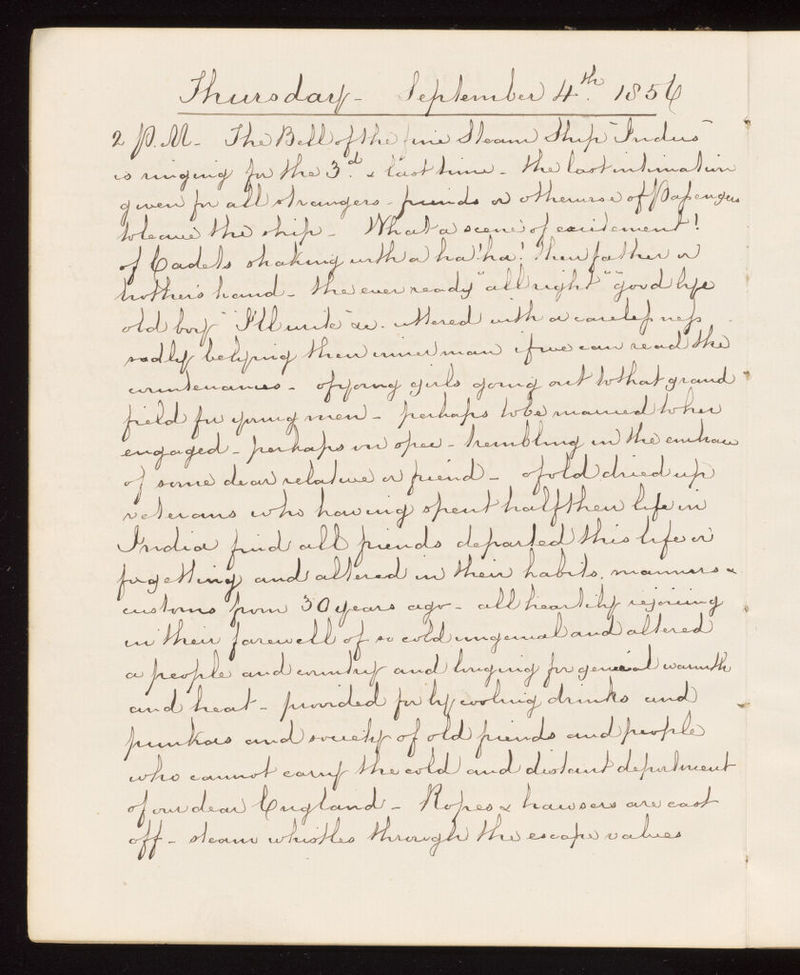 Thursday - September 4th. 1856
2 P.M. - The Bell of the fine Steam Ship "Indus"
is ringing for the 3d. & last time - the last intimation
given for all strangers - friends or otherwise of Passengers
to leave the ship - What a scene of excitement!
of Cadets shaking with a ha! ha! their father or
brothers hand - the ever ready "all right" "good bye
old boy" "I'll write" &c. uttered with a carelessness
sadly belying their inner man if we can read the
countenances - of young girls going out to that grand
field for young men - perhaps to be married to her
engaged - perhaps on spec - trembling in the embrace
of some dear relative or friend - of old dried up
veterans who having spent half their life in
India find all friends departed this life or
forgetting and altered in their habits, manners &
customs from 30 years ago - all heartily rejoicing
in their farewell of so cold ungenial and altered
a people and country and longing for genial warmth
and heat - provided for by cooling drinks and
punkas and society of old friends and people
who cannot carry the cold and distant deportment
of our dear England - Ropes & hawsers are cast
off - steam whistles through the escape valves